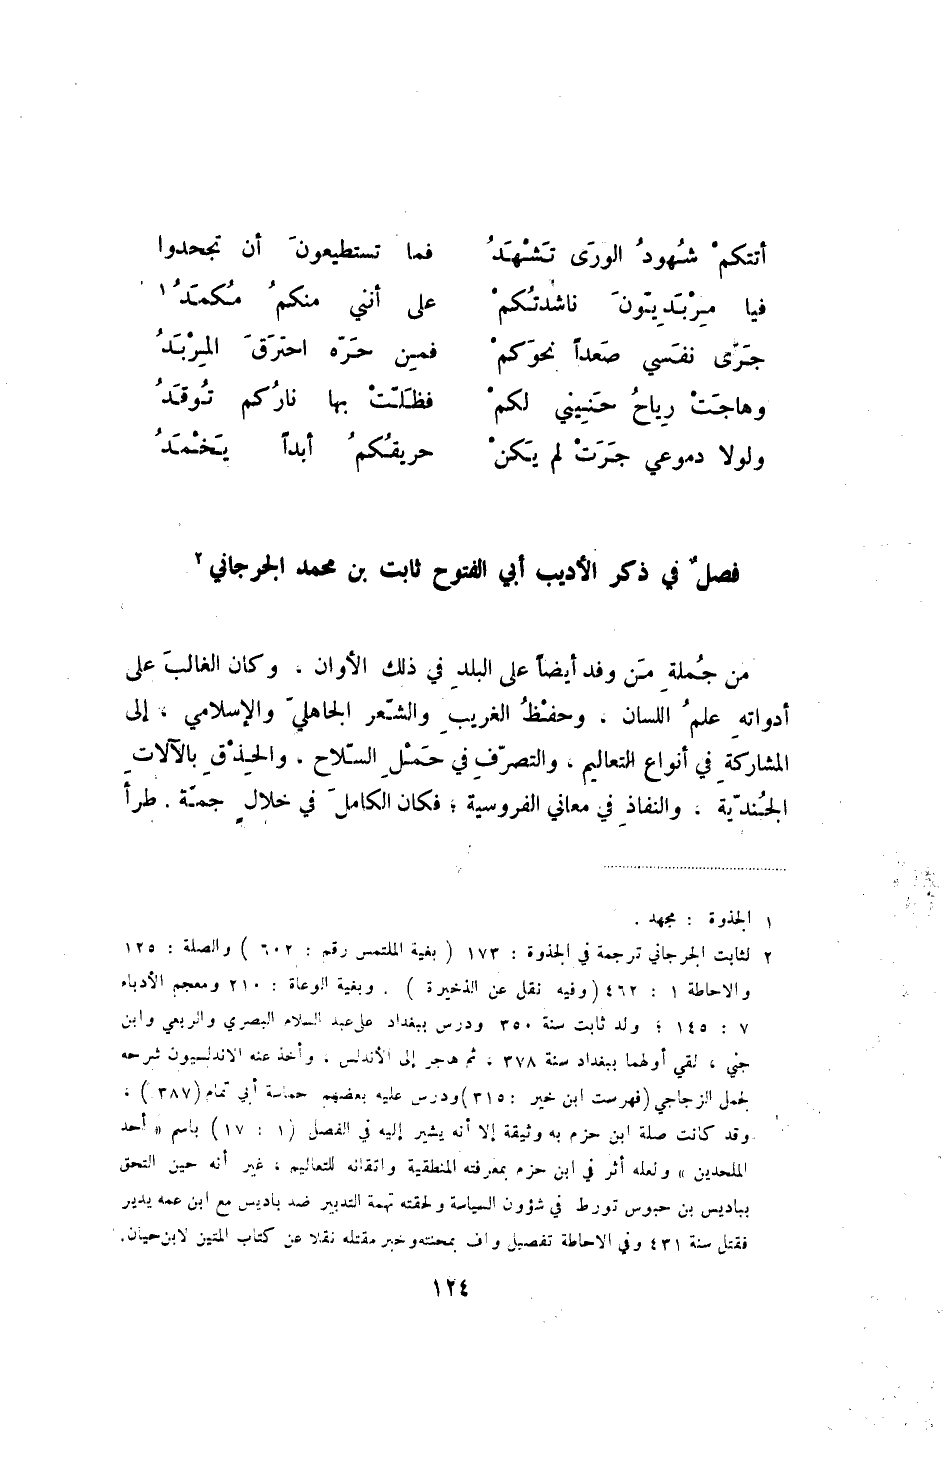 أتتكمْ شهُودُ الورَى تَشْهَدُ فما تستطيعونَ أن تجحدوا
فيا مِرْبَديّونَ ناشدتُكمْ على أنني منكمُ مُكمَدُ١
جَرَى نفَسي صَعداً نحوَكمْ فمِن حَرّه احترَقَ المِرْبَدُ
وهاجَتْ رياحُ حَنيني لكمْ فظَلّتْ بها نارُكم تُوقَدُ
ولولا دموعي جَرَتْ لم يَكنْ حريقُكمُ أبداً يَخْمَدُ
فصلٌ في ذكر الأديب أبي الفتوح ثابت بن محمد الجرجاني٢
من جُملةِ مَن وفد أيضاً على البلدِ في ذلك الأوان . وكان الغالبَ على
أدواتهِ علمُ اللسان ، وحفْظُ الغريبِ والشّعر الجاهليّ والإسلامي ، إلى
المشاركةِ في أنواع التعاليم ، والتصرّفِ في حَمْلِ السّلاح ، والحِذْقِ بالآلاتِ
الجُنديّة ، والنفاذِ في معاني الفروسية ؛ فكان الكاملَ في خلالٍ جمّة . طرأ
١ الجذوة : مجهد .
٢ لثابت الجرجاني ترجمة في الجذوة : ١٧٣ ( بغية الملتمس رقم : ٦٠٢ ) والصلة : ١٢٥
والاحاطة ١ : ٤٦٢ (وفيه نقل عن الذخيرة ) . وبغية الوعاة : ٢١٠ ومعجم الأدباء
٧ : ١٤٥ ؛ ولد ثابت سنة ٣٥٠ ودرس ببغداد على عبد السلام البصري والربعي وابن
جني ، لقي أولهما ببغداد سنة ٣٧٨ ، ثم هجر إلى الأندلس ، وأخذ عنه الاندلسيون شرحه
لجمل الزجاجي (فهرست ابن خير : ٣١٥) ودرس عليه بعضهم حماسة أبي تمام (٣٨٧) ،
وقد كانت صلة ابن حزم به وثيقة إلا أنه يشير إليه في الفصل (١ : ١٧) باسم « أحد
الملحدين » ولعله أثر في ابن حزم بمعرفته المنطقية واتقانه للتعاليم ، غير أنه حين التحق
بباديس بن حبوس تورط في شؤون السياسة ولحقته تهمة التدبير ضد باديس مع ابن عمه يدير
فقتل سنة ٤٣١ وفي الاحاطة تفصيل واف بمحنته وخبر مقتله نقلا عن كتاب المتين لابن حيان.
١٢٤